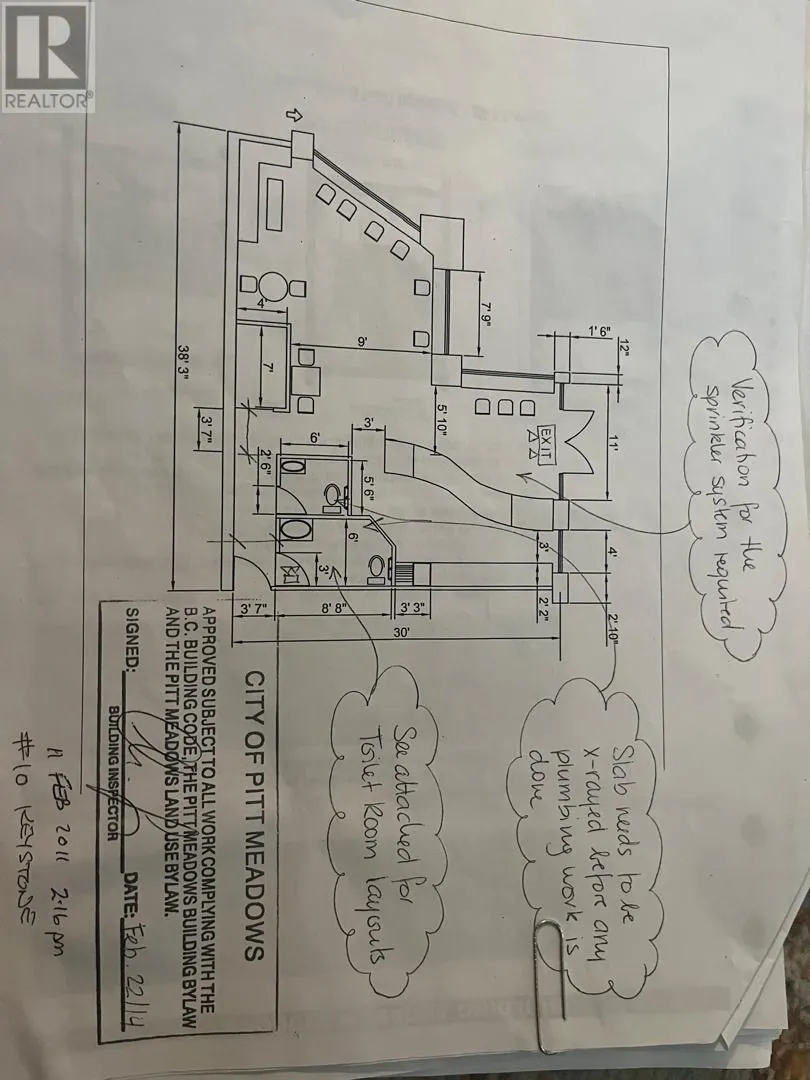 REALTOR®
Verification for the
sprinkler system required
Slab needs to be
x-rayed before any
plumbing work is
done
See attached for
Toilet Room layouts
12"
1' 6"
11'
4'
2' 10"
7' 9"
EXIT
5' 10"
3'
2' 2"
9'
3'
5' 6"
6'
6'
3'
4'
7'
2' 6"
38' 3"
3' 7"
3' 7"
8' 8"
3' 3"
30'
CITY OF PITT MEADOWS
APPROVED SUBJECT TO ALL WORK COMPLYING WITH THE
B.C. BUILDING CODE, THE PITT MEADOWS BUILDING BYLAW
AND THE PITT MEADOWS LAND USE BYLAW.
SIGNED:
DATE: Feb. 22/14
BUILDING INSPECTOR
11 FEB 2011 2:16 pm
#10 KEYSTONE